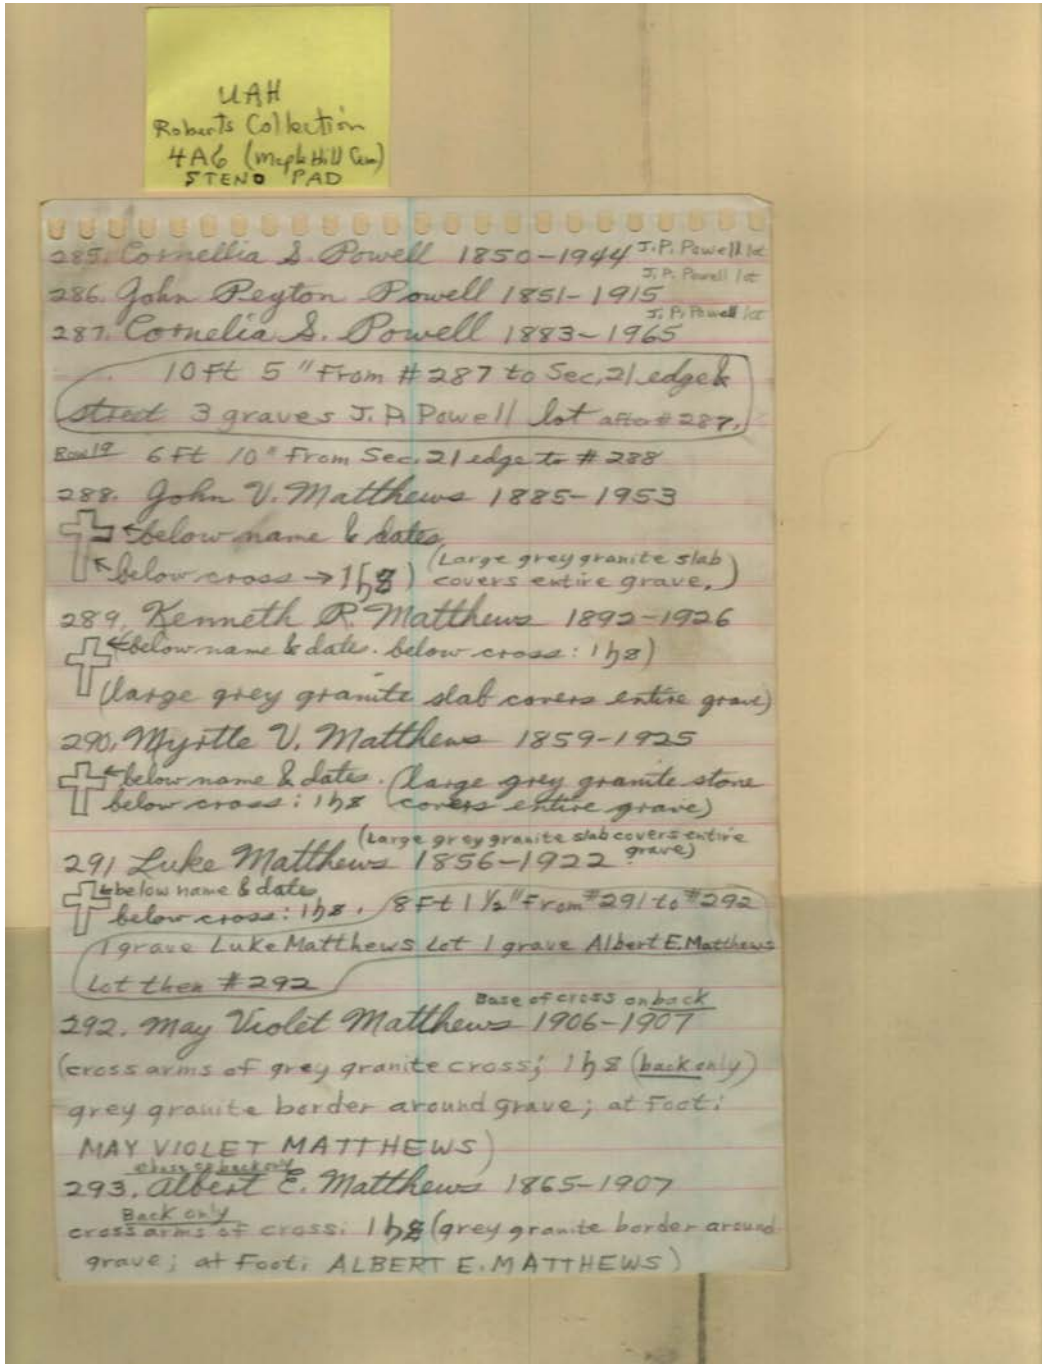 UAH
Roberts Collection
4A6 (Maple Hill Cem)
STENO PAD
285. Cornellia S. Powell 1850-1944 J.P. Powell lot
286. John Peyton Powell 1851-1915 J.P. Powell lot
287. Cornelia S. Powell 1883-1965 J.P. Powell lot
10 Ft 5" From #287 to Sec. 21 edge &
street 3 graves J.P. Powell lot after #287.
Row 19 6 Ft 10" From Sec. 21 edge to #288
288. John V. Matthews 1885-1953
←below name & dates,
below cross → 1h8) (Large grey granite slab
covers entire grave.)
289. Kenneth R. Matthews 1892-1926
←below name & dates. below cross: 1h8)
(large grey granite slab covers entire grave)
290. Myrtle V. Matthews 1859-1925
←below name & dates. (large grey granite stone
below cross: 1h8 covers entire grave)
(Large grey granite slab covers entire
291 Luke Matthews 1856-1922 grave)
←below name & dates
below cross: 1h8. 8 Ft 1 ½" From #291 to #292
1 grave Luke Matthews Lot 1 grave Albert E. Matthews
Lot then #292
Base of cross on back
292. May Violet Matthews 1906-1907
(cross arms of grey granite cross; 1h8 (back only)
grey granite border around grave; at Foot:
MAY VIOLET MATTHEWS)
back only
293. Albert E. Matthews 1865-1907
Back only
cross arms of cross: 1h8 (grey granite border around
grave; at Foot: ALBERT E. MATTHEWS)